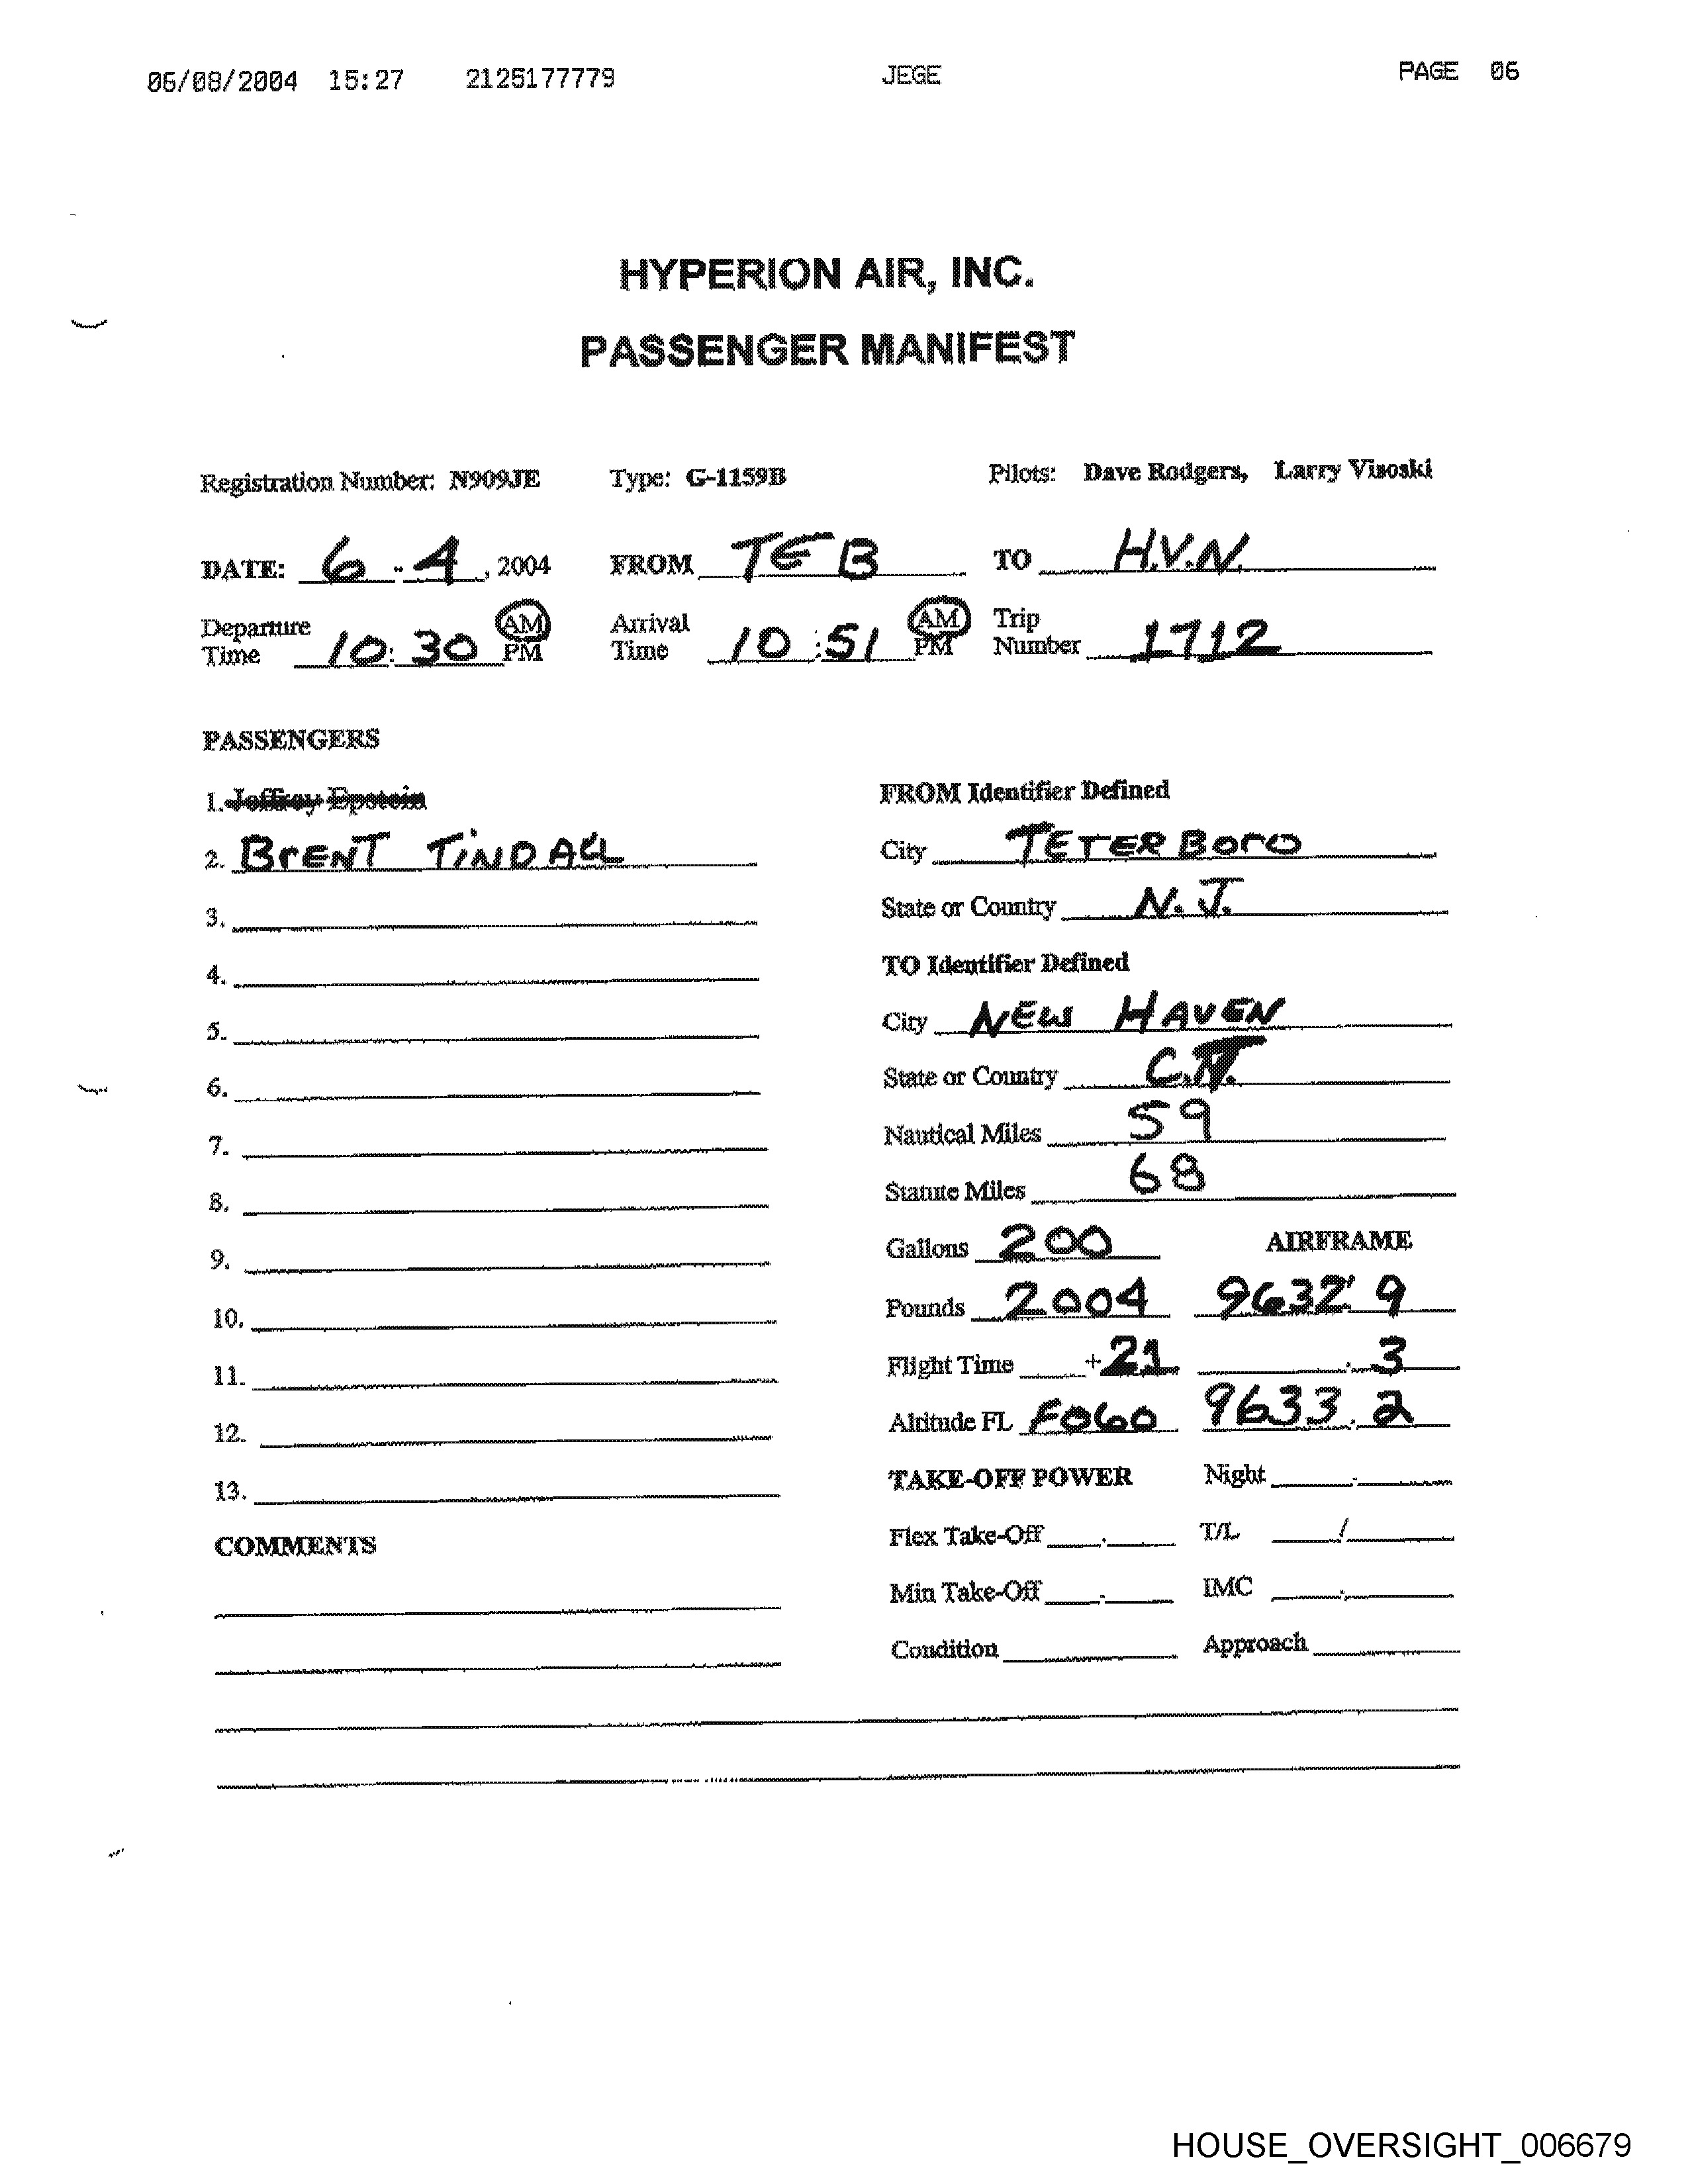 06/08/2004 15:27 2125177779 JEGE PAGE 06
HYPERION AIR, INC.
PASSENGER MANIFEST
Registration Number: N909JE Type: G-1159B Pilots: Dave Rodgers, Larry Visoski
DATE: 6 - 4, 2004 FROM TEB TO H.V.N.
Departure Time 10:30 AM PM Arrival Time 10:51 AM PM Trip Number 1712
PASSENGERS
1. Jeffrey Epstein
2. BrENT TiNDALL
3.
4.
5.
6.
7.
8.
9.
10.
11.
12.
13.
COMMENTS
FROM Identifier Defined
City TETERBOrO
State or Country N.J.
TO Identifier Defined
City NEW HAVEN
State or Country C.T.
Nautical Miles 59
Statute Miles 68
Gallons 200 AIRFRAME
Pounds 2004 9632 9
Flight Time + 21 . 3
Altitude FL F060 9633.2
TAKE-OFF POWER Night
Flex Take-Off T/L /
Min Take-Off IMC
Condition Approach
HOUSE_OVERSIGHT_006679